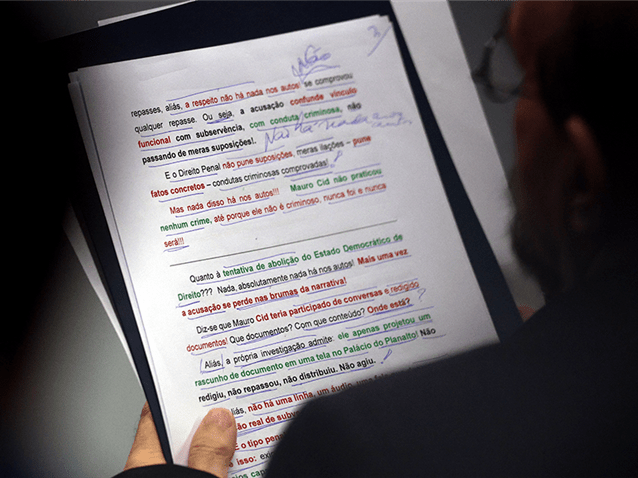 Não
repasses, aliás, a respeito não há nada nos autos! se comprovou
qualquer repasse. Ou seja, a acusação confunde vínculo
funcional com subservência, com conduta criminosa, não
passando de meras suposições!.
E o Direito Penal não pune suposições, meras ilações – pune
fatos concretos – condutas criminosas comprovadas!
Mas nada disso há nos autos!!! Mauro Cid não praticou
nenhum crime, até porque ele não é criminoso, nunca foi e nunca
será!!!
Quanto à tentativa de abolição do Estado Democrático de
Direito??? Nada, absolutamente nada há nos autos! Mais uma vez
a acusação se perde nas brumas da narrativa!
Diz-se que Mauro Cid teria participado de conversas e redigido
documentos! Que documentos? Com que conteúdo? Onde está?
Aliás, a própria investigação admite: ele apenas projetou um
rascunho de documento em uma tela no Palácio do Planalto! Não
redigiu, não repassou, não distribuiu. Não agiu.
Aliás, não há uma linha, um áudio, uma
não real de
E o tipo
e isso: